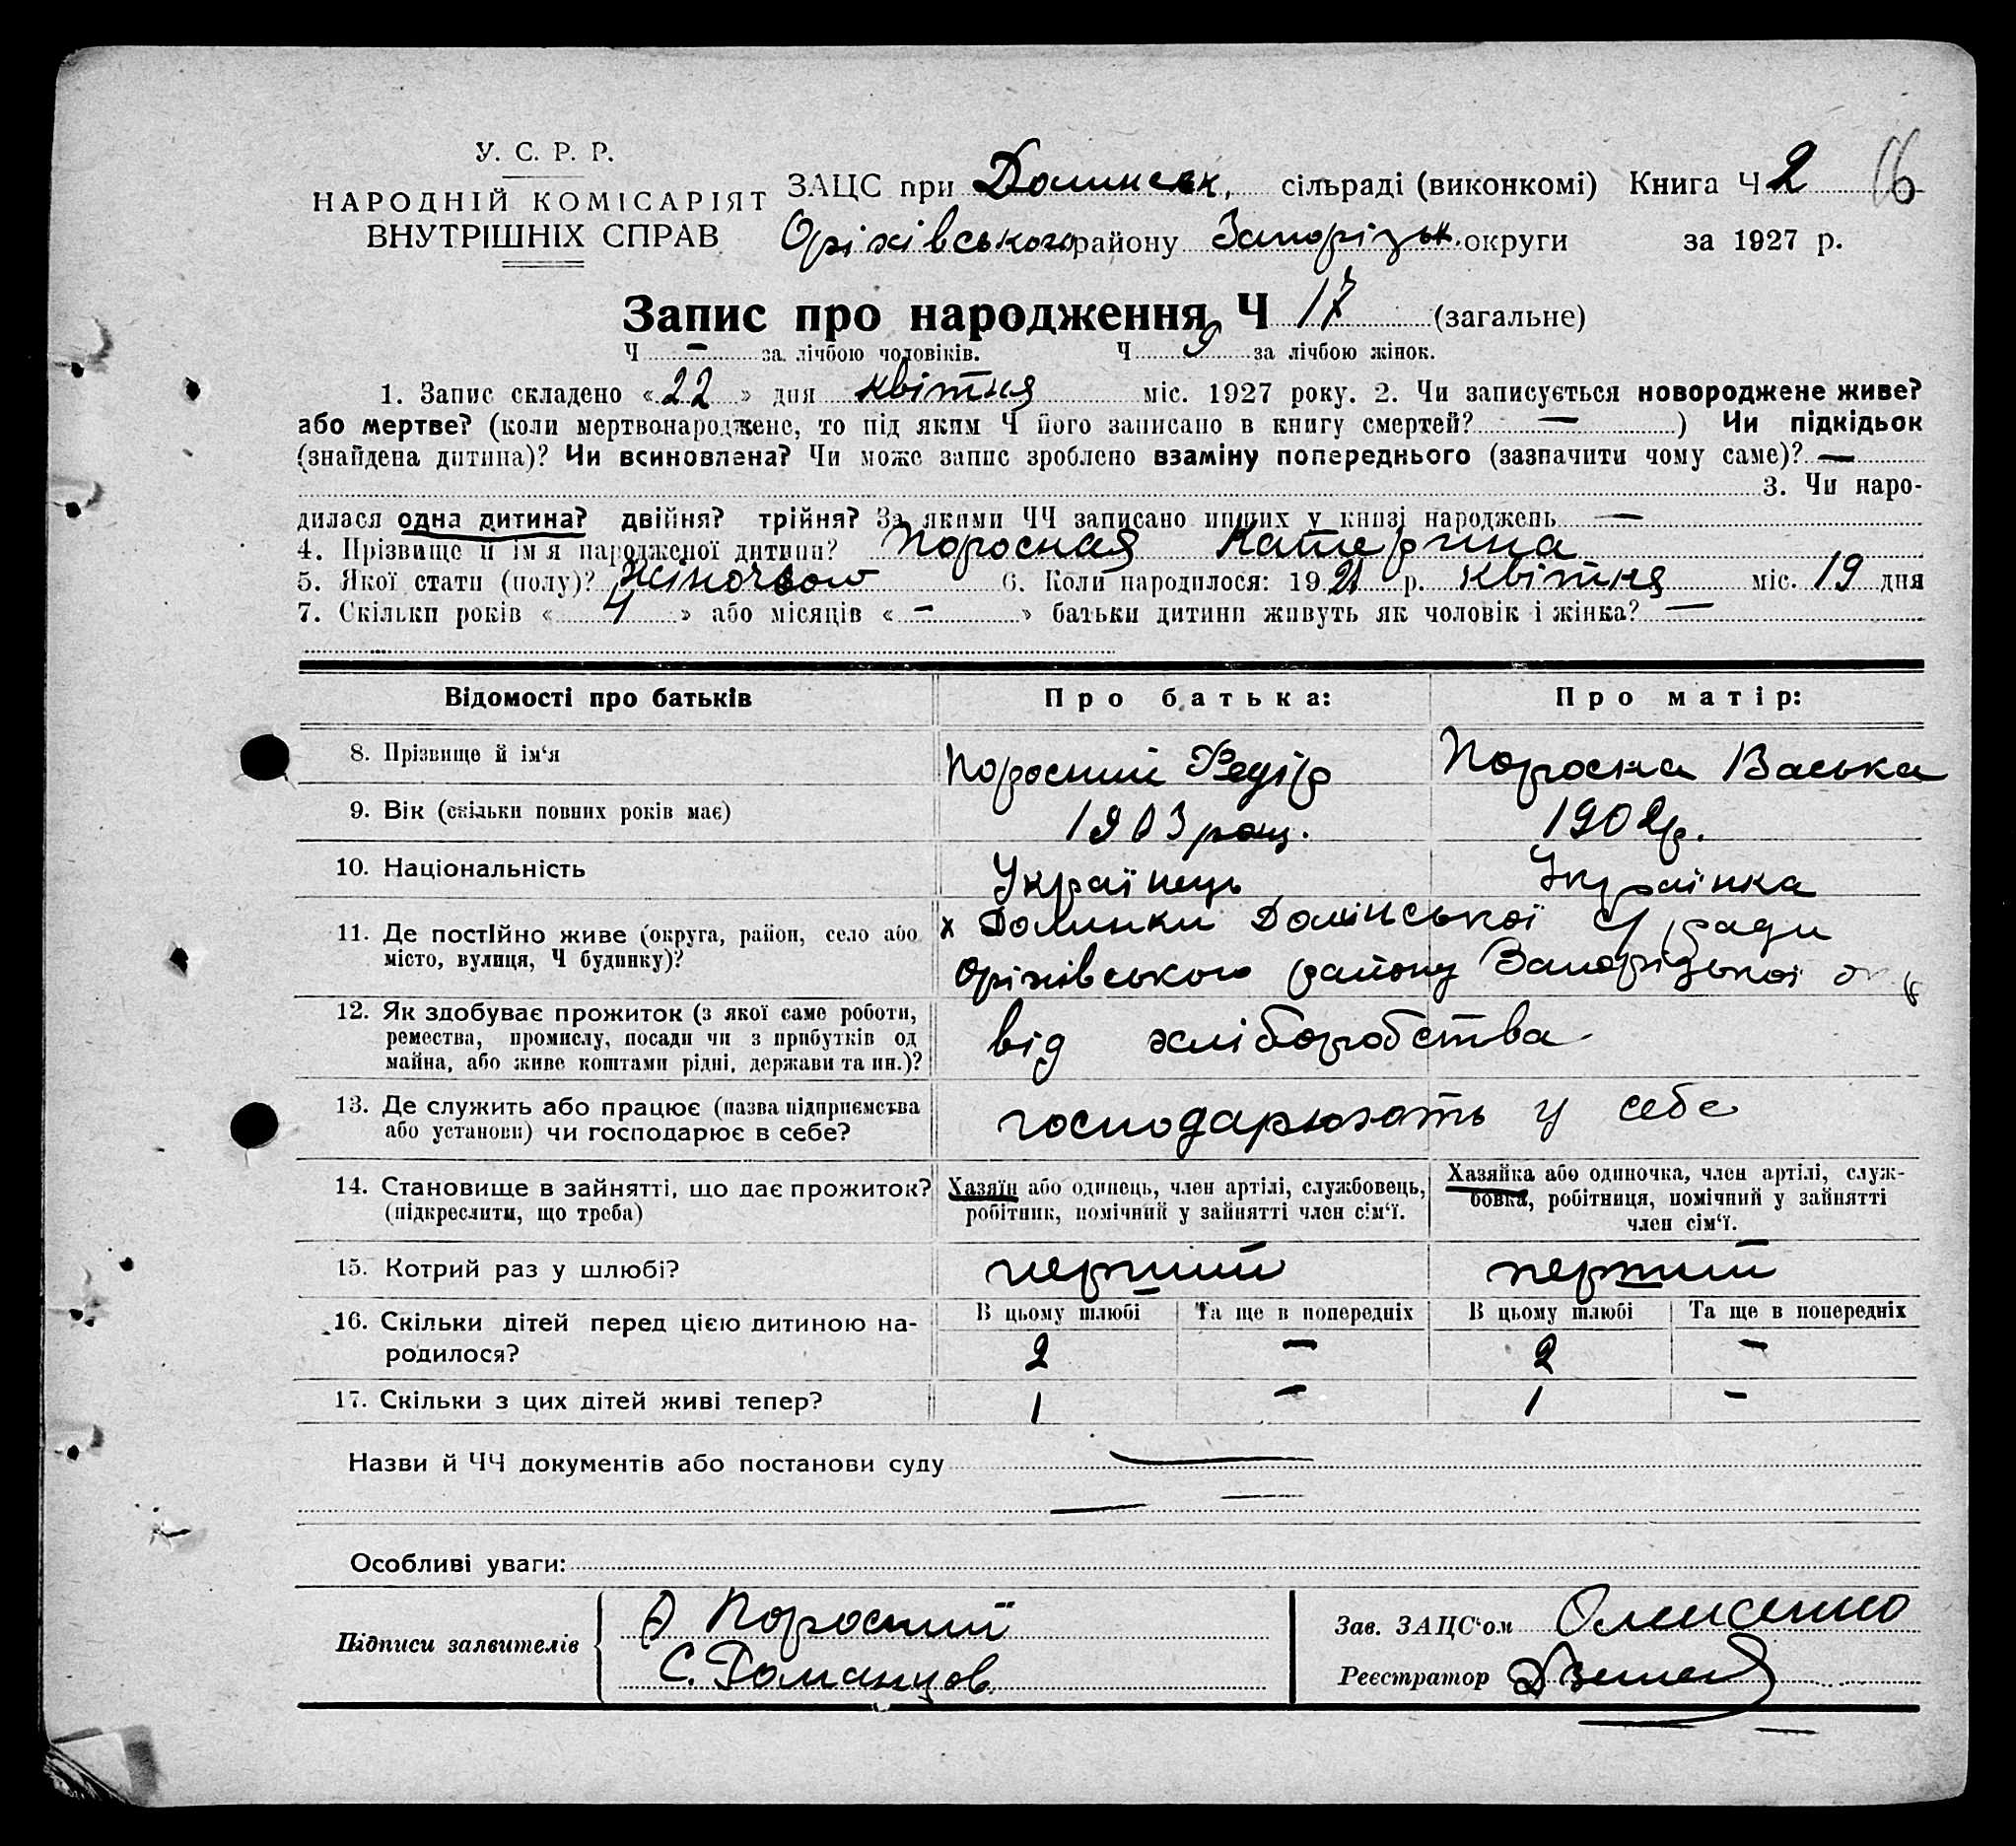 У. С. Р. Р.
НАРОДНІЙ КОМІСАРІЯТ
ВНУТРІШНІХ СПРАВ
ЗАЦС при Долинськ, сільраді (виконкомі) Книга Ч 2 16
Оріхівського району Запорізьк. округи за 1927 р.
Запис про народження Ч 17 (загальне)
Ч — за лічбою чоловіків. Ч 9 за лічбою жінок.
1. Запис складено «22» дня квітня міс. 1927 року. 2. Чи записується новороджене живе?
або мертве? (коли мертвонароджене, то під яким Ч його записано в книгу смертей? — ) Чи підкідьок
(знайдена дитина)? Чи всиновлена? Чи може запис зроблено взаміну попереднього (зазначити чому саме)? —
3. Чи наро-
дилася одна дитина? двійня? трійня? За якими ЧЧ записано инших у книзі народжень —
4. Прізвище й ім'я народженої дитини? Поросная Катерина
5. Якої стати (полу)? Жіночою 6. Коли народилося: 19 р. квітня міс. 19 дня
7. Скільки років « 4 » або місяців « — » батьки дитини живуть як чоловік і жінка? —
Відомості про батьків Про батька: Про матір:
8. Прізвище й ім'я Поросний Федір Поросна Васька
9. Вік (скільки повних років має) 1903 роц. 1902р.
10. Національність Українець Українка
11. Де постійно живе (округа, район, село або місто, вулиця, Ч будинку)? х Долинки Долінської С/ради
Оріхівського району Запорізької
12. Як здобуває прожиток (з якої саме роботи,
ремества, промислу, посади чи з прибутків од
майна, або живе коштами рідні, держави та ин.)? від хліборобства
13. Де служить або працює (назва підприємства
або установи) чи господарює в себе? господарюють у себе
14. Становище в зайнятті, що дає прожиток?
(підкреслити, що треба)
Хазяїн або одинець, член артілі, службовець,
робітник, помічний у зайнятті член сім'ї.
Хазяйка або одиночка, член артілі, служ-
бовка, робітниця, помічний у зайнятті
член сім'ї.
15. Котрий раз у шлюбі? перший перший
16. Скільки дітей перед цією дитиною на-
родилося?
В цьому шлюбі Та ще в попередніх В цьому шлюбі Та ще в попередніх
2 — 2 —
17. Скільки з цих дітей живі тепер? 1 — 1 —
Назви й ЧЧ документів або постанови суду —
Особливі уваги:
Підписи заявителів Поросний
С. Романцов.
Зав. ЗАЦС'ом Олексенко
Реєстратор